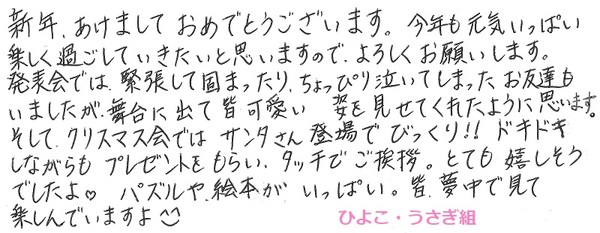 新年、あけまして おめでとうございます。今年も元気いっぱい
楽しく過ごしていきたいと思いますので、よろしくお願いします。
発表会では、緊張して固まったり、ちょっぴり泣いてしまったお友達も
いましたが、舞台に出て皆可愛い 姿を見せてくれたように思います。
そして、クリスマス会では サンタさん登場でびっくり!! ドキドキ
しながらも プレゼントをもらい、タッチでご挨拶。とても 嬉しそう
でしたよ♡ パズルや、絵本が いっぱい。皆、夢中で見て
楽しんでいますよ☺
ひよこ・うさぎ組